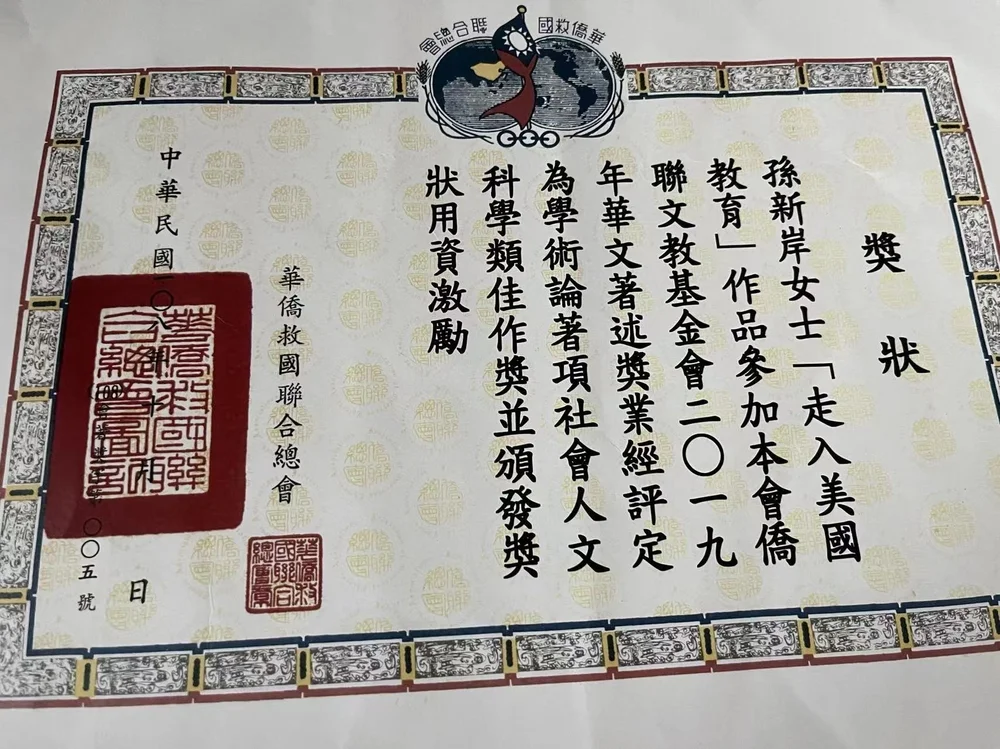 華僑救國聯合總會
獎狀
孫新岸女士「走入美國
教育」作品參加本會僑
聯文教基金會二〇一九
年華文著述獎業經評定
為學術論著項社會人文
科學類佳作獎並頒發獎
狀用資激勵
華僑救國聯合總會
中華民國一〇八年十月 日
〇五號